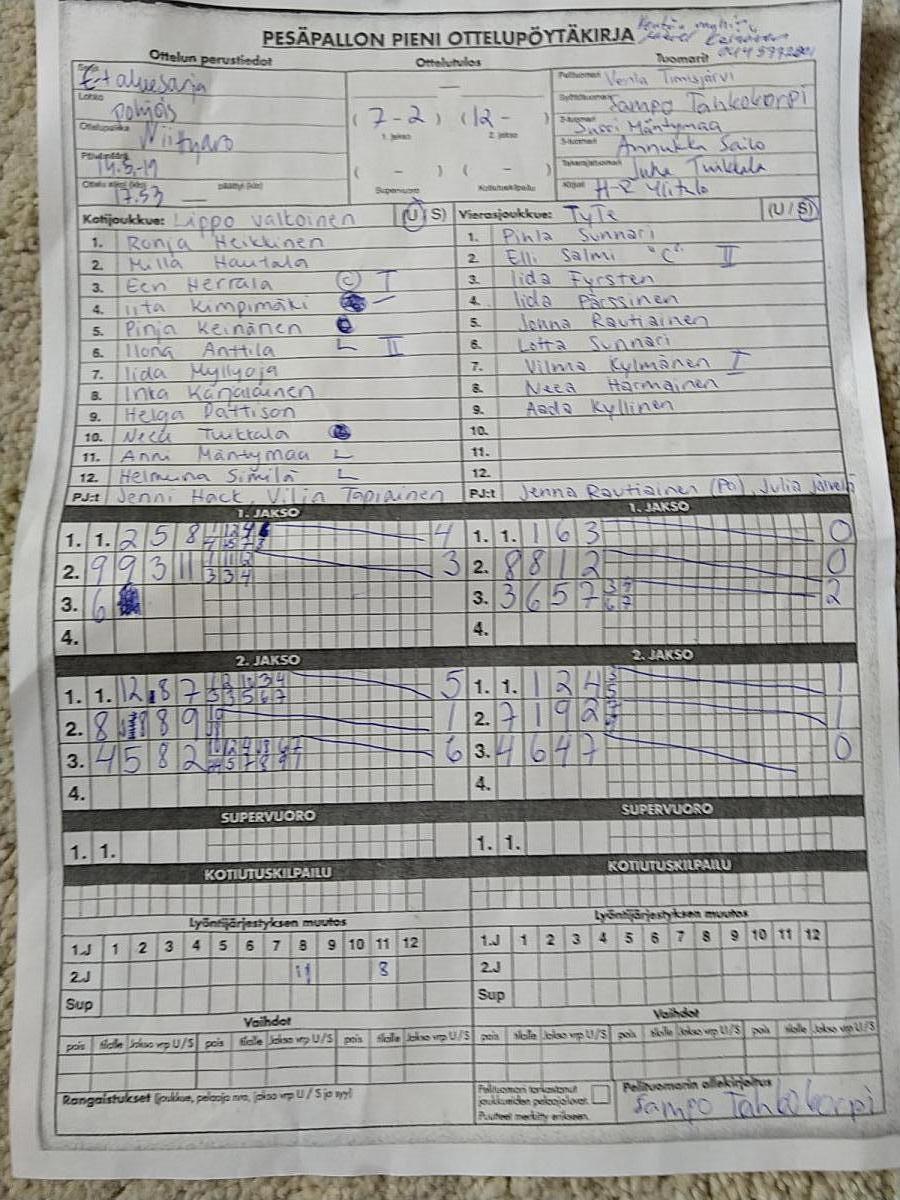 PESÄPALLON PIENI OTTELUPÖYTÄKIRJA
Ottelun perustiedot
Ottelutulos
Tuomarit
0445772801
Sarja E-aluesarja
Lohko Pohjois
Ottelupaikka Niittyaro
Päivämäärä 14.5.-19
Ottelu alkoi (klo) 17.53 päättyi (klo)
—
( 7 - 2 ) ( 12 - )
1. jakso 2. jakso
( - ) ( - )
Supervuoro Kotiutuskilpailu
Pelituomari Venla Timisjärvi
Syöttötuomari Sampo Tahkokorpi
2-tuomari Jussi Mäntymaa
3-tuomari Annukka Sailo
Takarajatuomari Juha Tuikkala
Kirjuri H-R Ylitalo
Kotijoukkue: Lippo valkoinen (U/S)
1. Ronja Heikkinen
2. Milla Hautala
3. Eeri Herrala C I
4. Iita Kimpimäki
5. Pinja Keinänen
6. Ilona Anttila L II
7. Iida Myllyoja
8. Inka Karjalainen
9. Helga Pattison
10. Neea Tuikkala
11. Anni Mäntymaa L
12. Helmiina Similä L
PJ:t Jenni Hack, Vilja Tapiainen
Vierasjoukkue: TyTe (U/S)
1. Pihla Sunnari
2. Elli Salmi "C" II
3. Iida Fyrsten
4. Iida Pärssinen
5. Jonna Rautiainen
6. Lotta Sunnari
7. Vilma Kylmänen I
8. Neea Harmainen
9. Aada Kyllinen
10.
11.
12.
PJ:t Jenna Rautiainen (PJ), Julia Järvelä
1. JAKSO
1. 1. 2 5 8 4
2. 9 9 3 11 3
3. 6
4.
1. JAKSO
1. 1. 1 6 3 0
2. 8 8 1 2 0
3. 3 6 5 7 2
4.
2. JAKSO
1. 1. 12 8 7 5
2. 8 8 9 1
3. 4 5 8 2 6
4.
2. JAKSO
1. 1. 1 2 4 1
2. 7 1 9 2 1
3. 4 6 4 7 0
4.
SUPERVUORO
1. 1.
SUPERVUORO
1. 1.
KOTIUTUSKILPAILU
KOTIUTUSKILPAILU
Lyöntijärjestyksen muutos
1.J 1 2 3 4 5 6 7 8 9 10 11 12
2.J 11 8
Sup
Lyöntijärjestyksen muutos
1.J 1 2 3 4 5 6 7 8 9 10 11 12
2.J
Sup
Vaihdot
pois tilalle Jakso vrp U/S pois tilalle Jakso vrp U/S pois tilalle Jakso vrp U/S
Vaihdot
pois tilalle Jakso vrp U/S pois tilalle Jakso vrp U/S pois tilalle Jakso vrp U/S
Rangaistukset (joukkue, pelaaja nro, jakso vrp U/S ja syy)
Pelituomari tarkastanut
joukkueiden pelaajaluvat.
Puutteet merkitty erikseen.
Pelituomarin allekirjoitus
Sampo Tahkokorpi